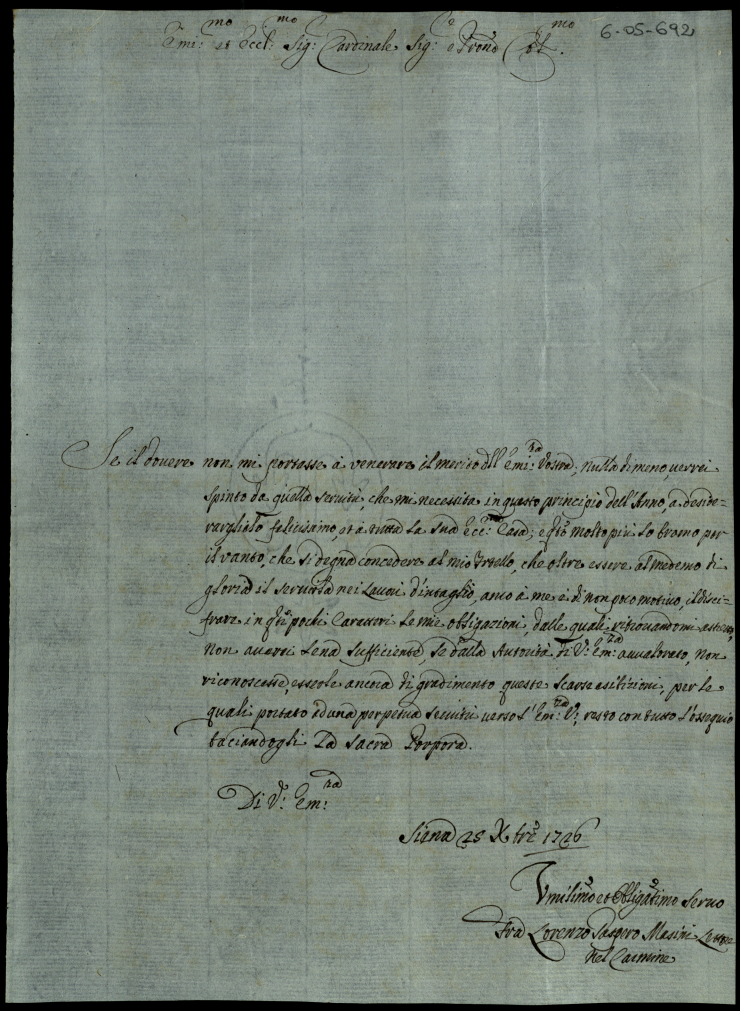 6-05-692
Emi:mo et Eccl:mo Sig: Cardinale Sig:e e Prone Col.mo
Se il dovere non mi portasse à venerare il merito dell' Emi:za Vostra; nulladimeno, verrei
spinto da quella servitù, che mi necessita in questo principio dell'Anno, a deside=
rargliato felicissimo, et à tutta la Sua Ecc:ma Casa; e molto più lo bramo per
il vanto, che si degna concedere al mio Frtello, che oltre essere al medemo di
gloria il servirla nei Lavori d'intaglio, anco à me è di non poco motivo, il disci=
frare in qsti pochi Caratteri le mie obligazioni, dalle quali ritrovandomi
Non averei Lena sufficiente, se dalla Autorità di V: Em:za avvalorato, Non
riconoscesse, essere ancora di gradimento queste scarse per le
quali portato ad una perpetua servitù verso l'Em:za V: resto con tutto l'ossequio
baciandogli La Sacra Porpora.
Di V: Em:za
Siena 25 Xbre 1726
Vmilimo et Obligatimo Servo
Fra Lorenzo Masini Lettore
Nel Carmine